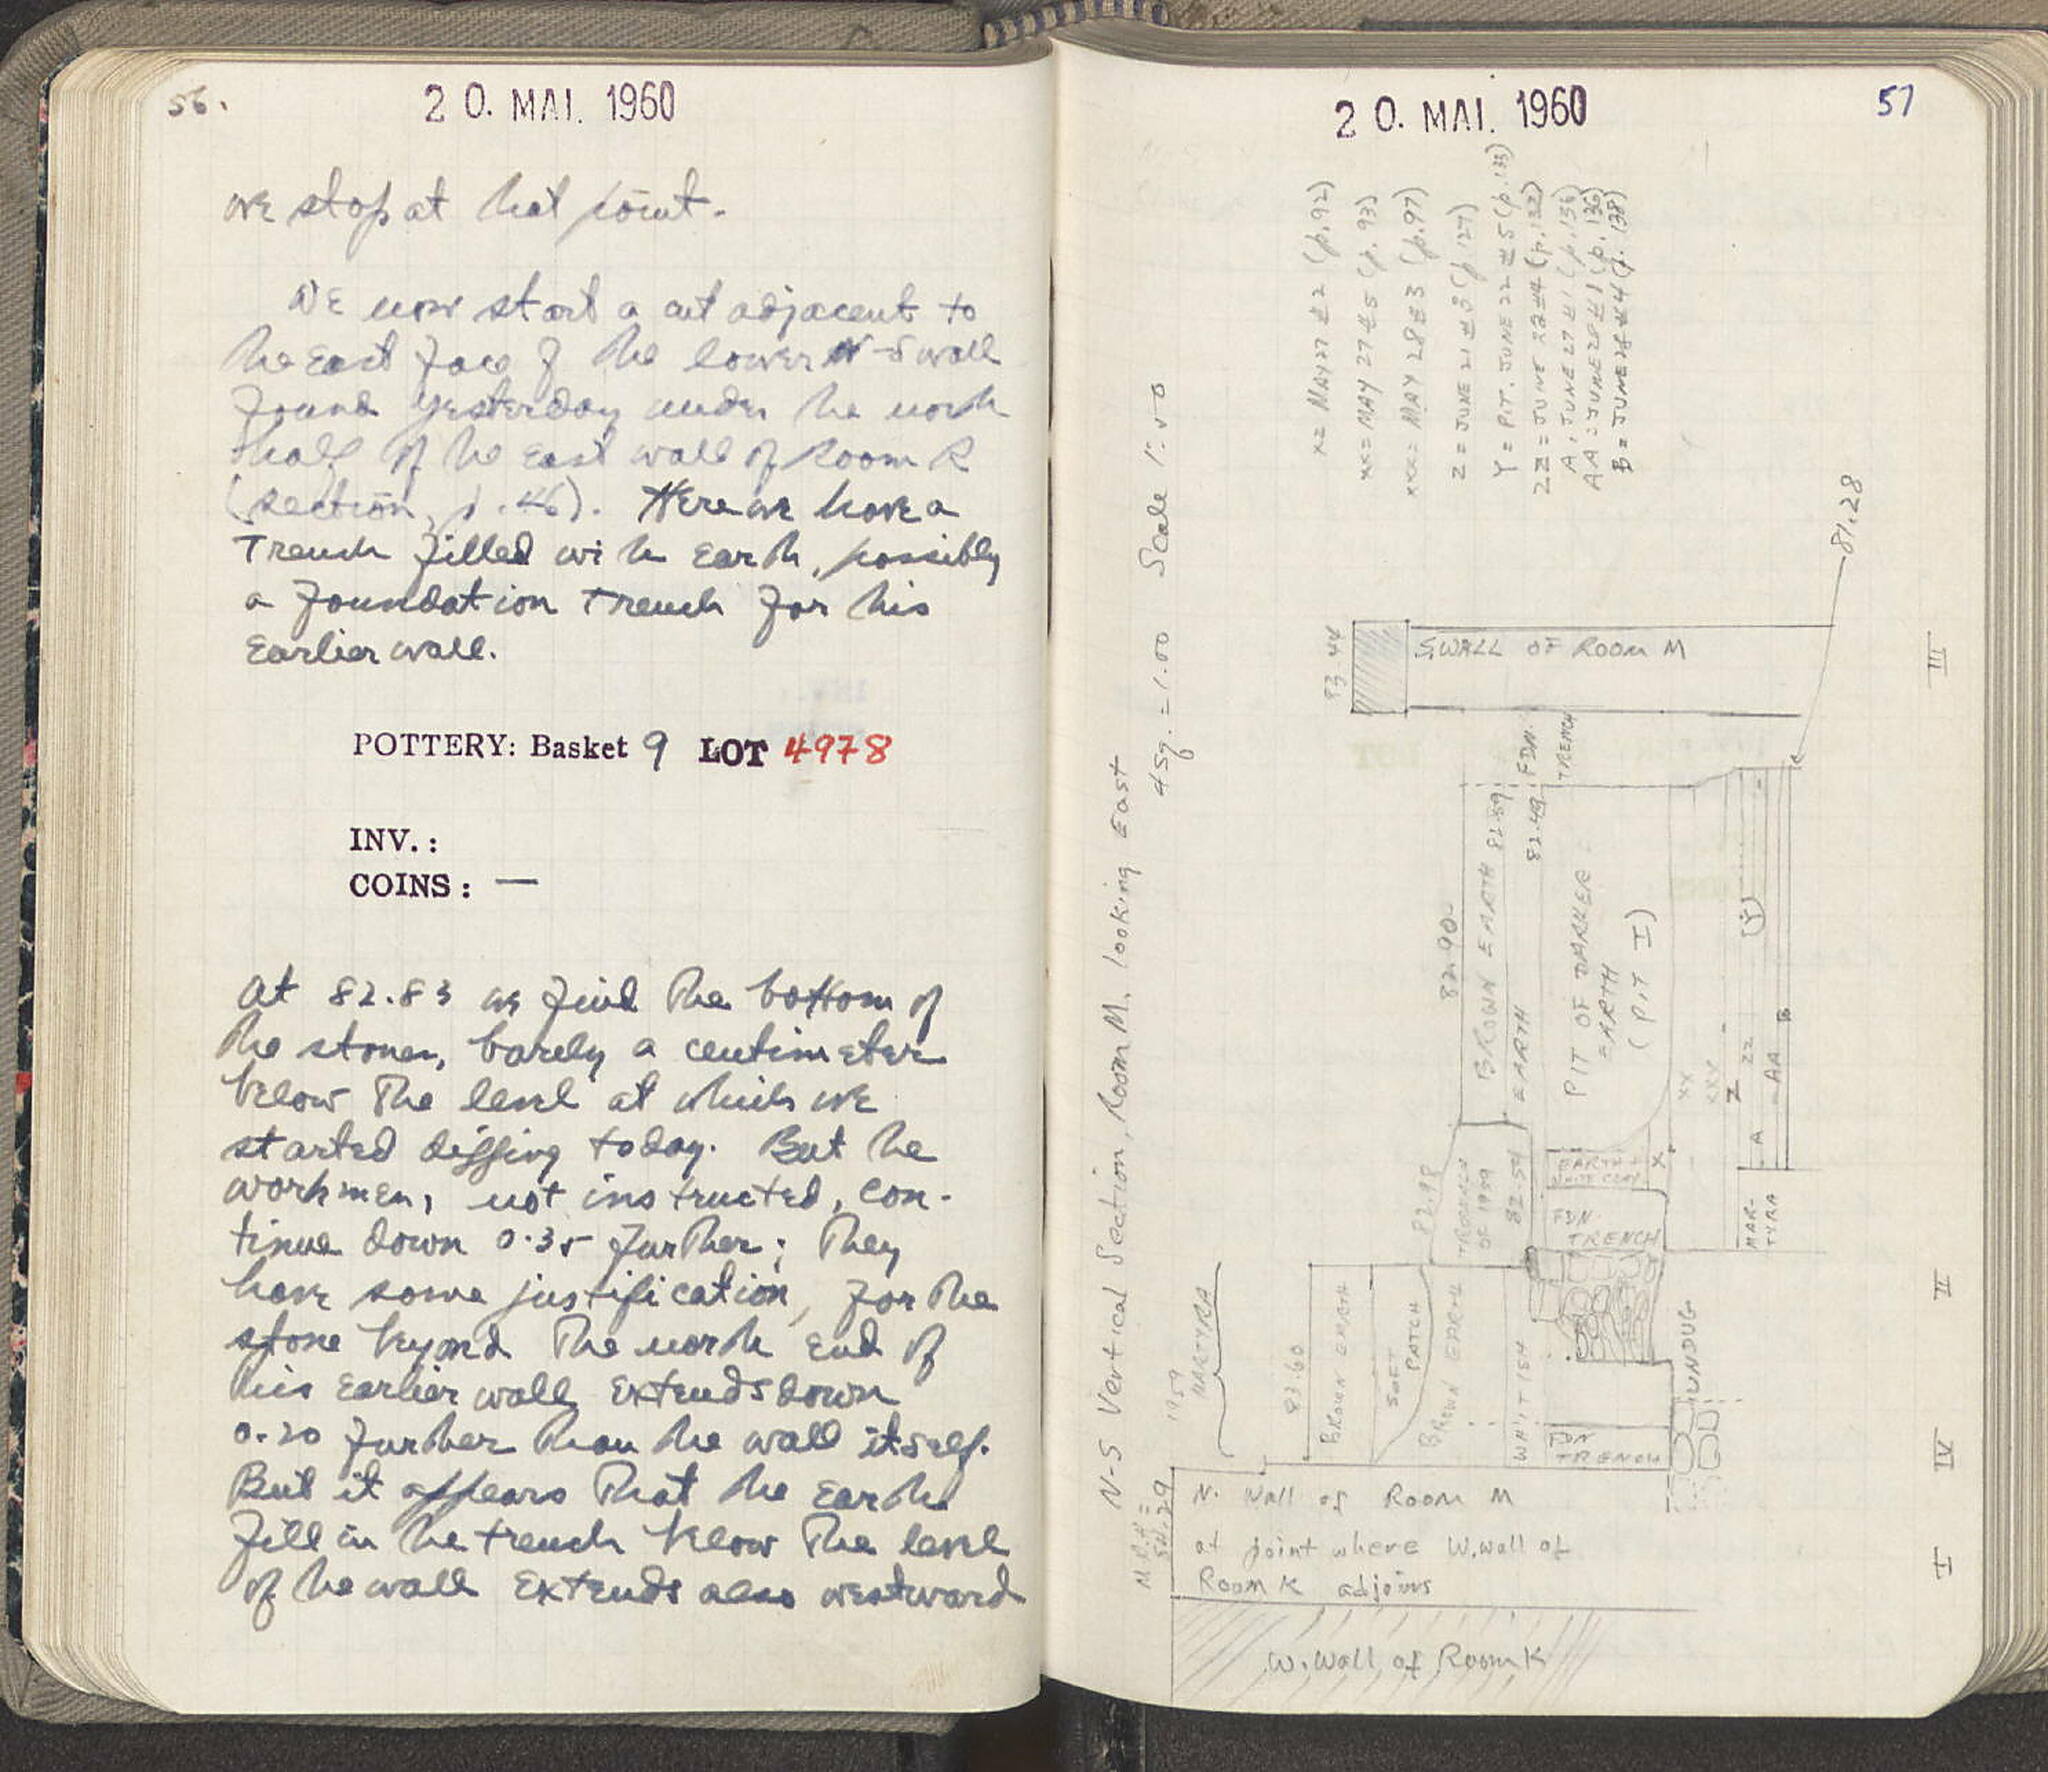 56.
20. MAI. 1960
we stop at that point.
We now start a cut adjacent to
the East face of the lower N-S wall
found yesterday under the north
half of the East wall of Room R
(section, p. 46). Here we have a
Trench filled with Earth, possibly
a foundation Trench for this
Earlier wall.
POTTERY: Basket 9 LOT 4978
INV.:
COINS: —
At 82.83 we find the bottom of
the stones, barely a centimeter
below the level at which we
started digging today. But the
workmen, not instructed, con-
tinue down 0.35 further; they
have some justification, for the
stone beyond the north End of
this Earlier wall Extends down
0.20 further than the wall itself.
But it appears that the Earth
fill in the trench below the level
of the wall Extends also westward
20. MAI. 1960
57
N-S Vertical Section, Room M, looking East
4 sq. = 1.00 Scale 1:50
X = MAY 27 #2 (p.92)
XX = MAY 27 #5 (p.93)
XXX = MAY 28 #3 (p.97)
Z = JUNE 21 #3 (p.127)
Y = PIT. JUNE 22 #5 (p.133)
ZZ = JUNE 22 #4 (p.132)
A: JUNE 27 #1 (p.156)
AA: JUNE 28 #1 (p.136)
B = JUNE 28 #4 (p.138)
81.28
83.44
S. WALL OF ROOM M
FDN. TRENCH
82.90
BROWN EARTH 82.59
82.49
EARTH
PIT OF DARKER
EARTH
(PIT I)
(Y)
XX
XXX
Z
ZZ
AA
B
A
X
82.98
TRENCH
OF 1959
82.54
EARTH +
WHITE CLAY
FDN.
TRENCH
MAR-
TYRA
1959
MARTYRA
83.60
BROWN EARTH
SOFT
PATCH
BROWN EARTH
WHITISH
FDN
TRENCH
UNDUG
N. Wall of Room M
at joint where W. wall of
Room K adjoins
W. Wall of Room K
III
II
IV
I